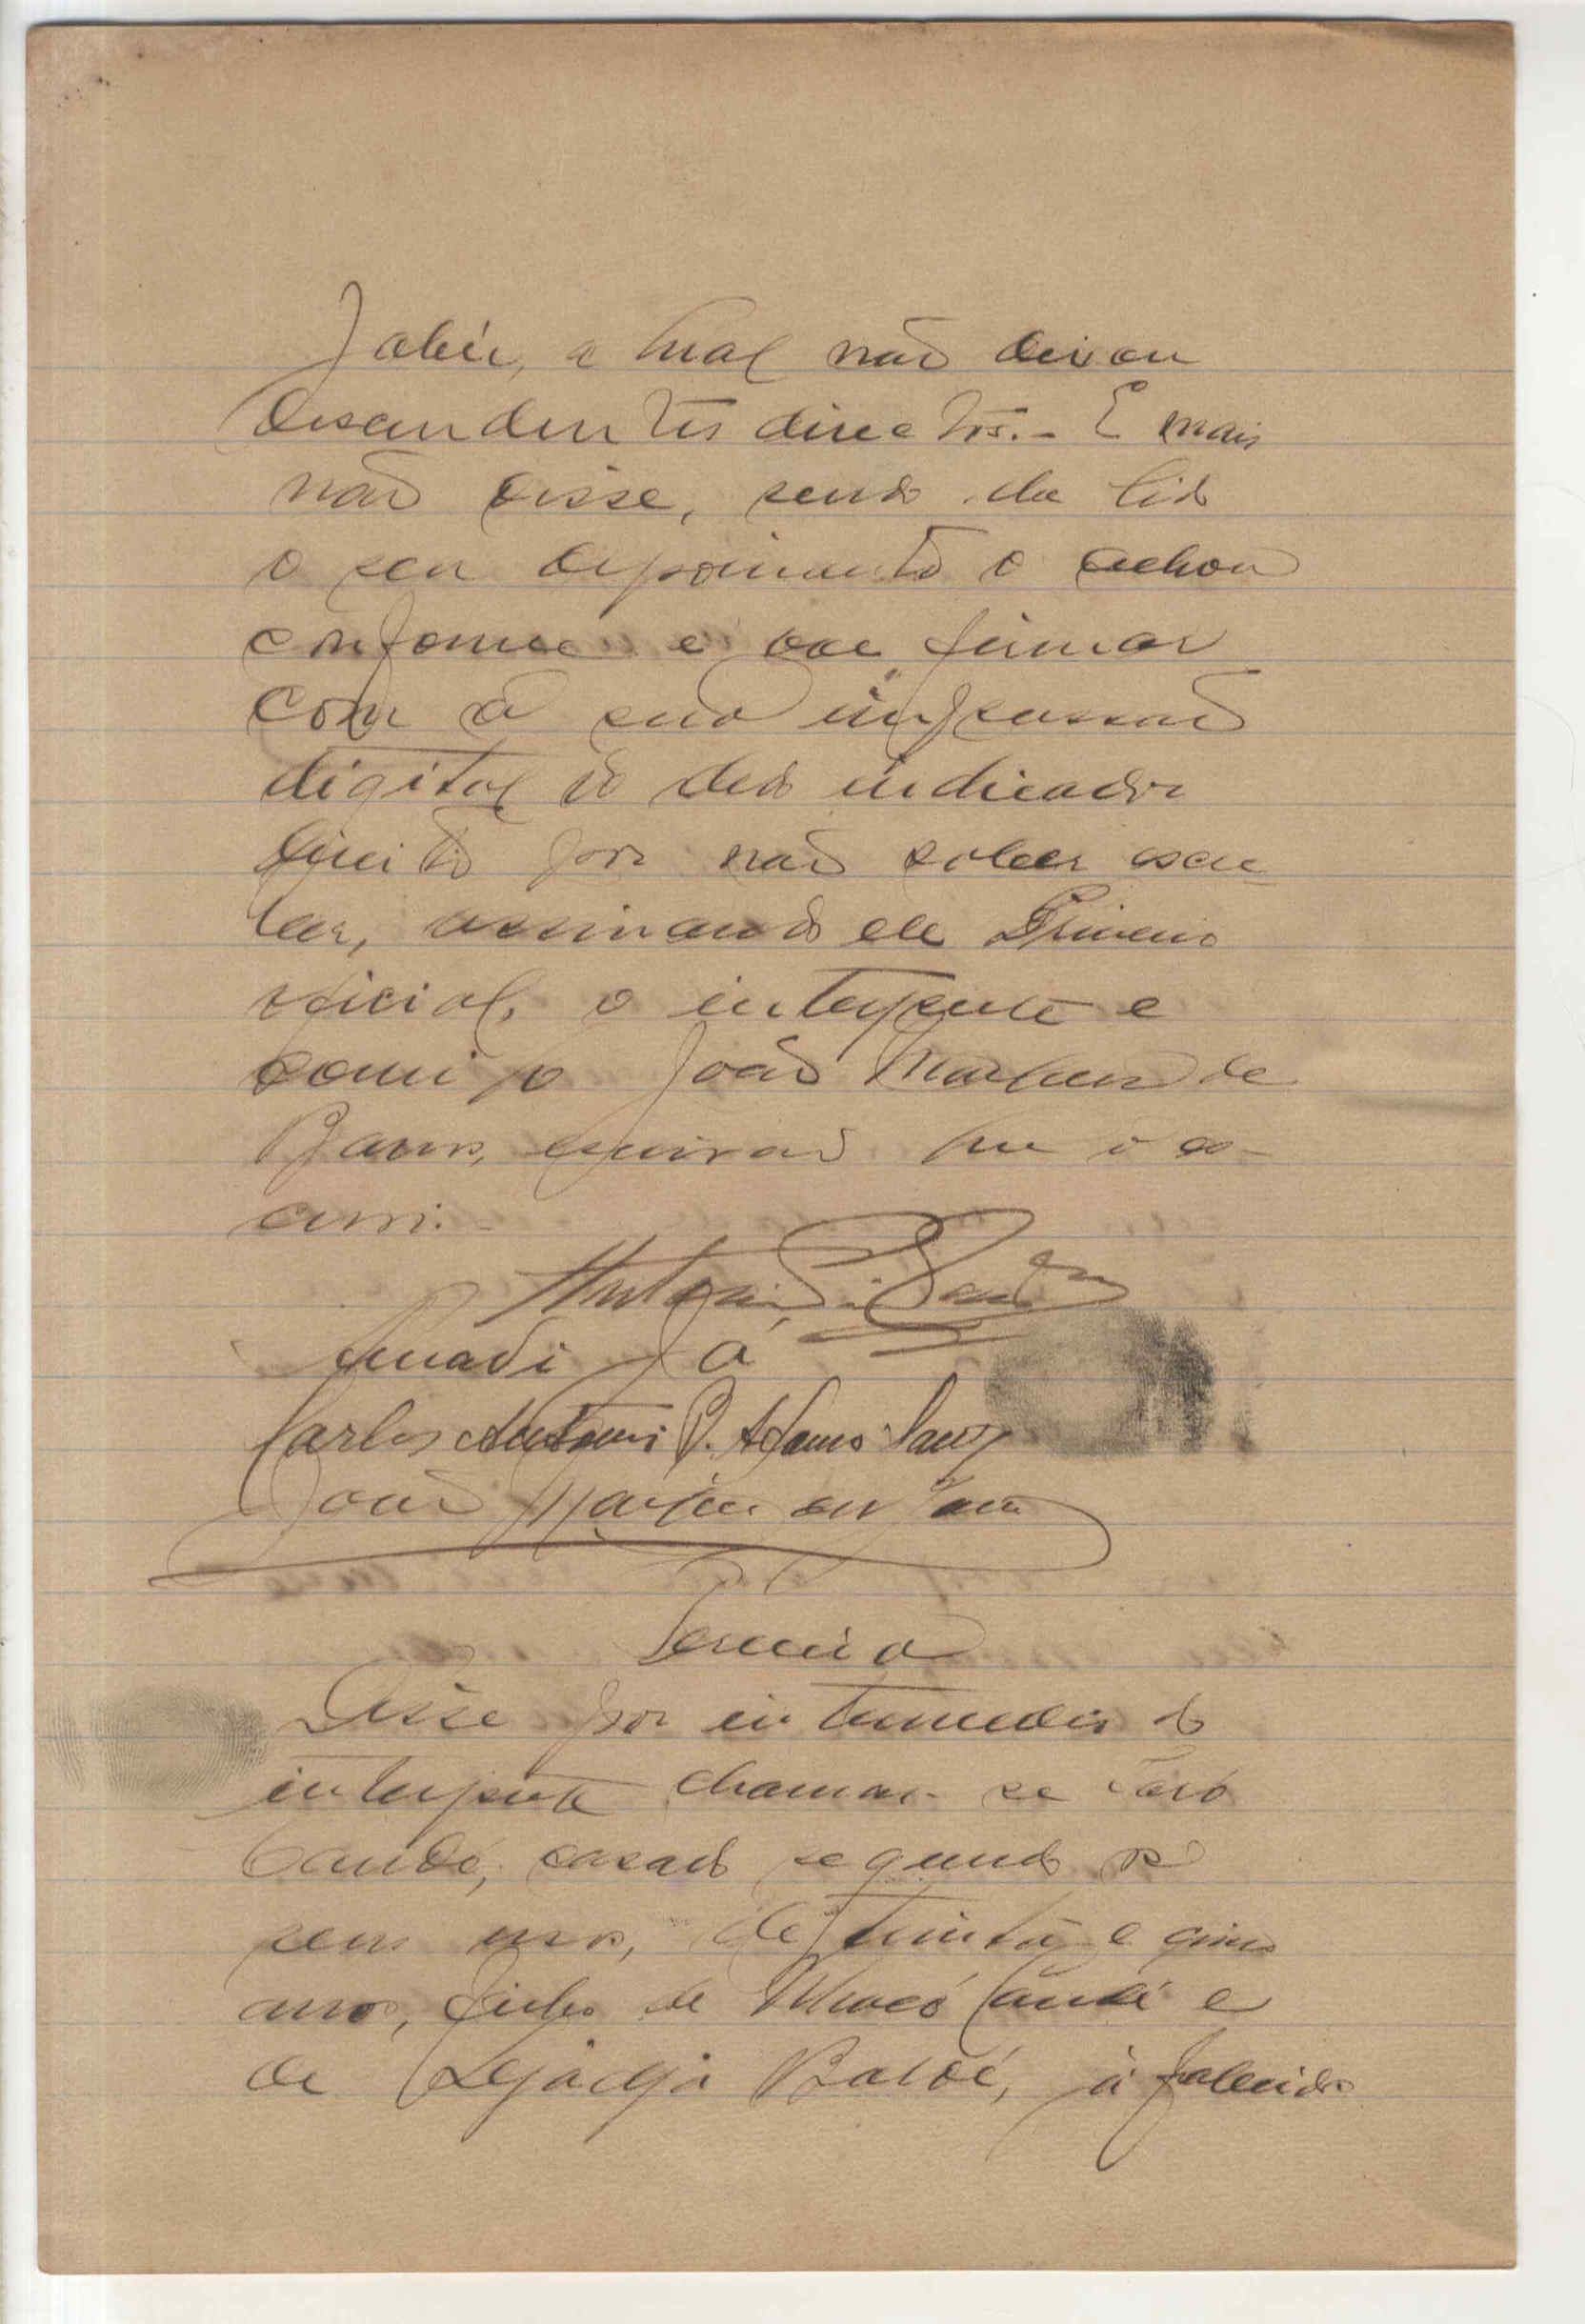 Jabú, a qual não deixou
descendentes directos.- E mais
não disse, sendo-lhe lido
o seu depoimento o achou
conforme e vae firmar
com a sua impressão
digital do dedo indicador
direito por não saber escre-
ver, assinando ele Primeiro
oficial, o interprete e
comigo João Marques de
Barros, escrivão que o es-
crevi.-
Amadú Já
Carlos Antonio
João Marques de Barros
Terceira
Disse por intermedio do
interprete chamar-se
Candé, casado segundo os
seus usos, de trinta e cinco
anos, filho de Candé e
de Baldé, já falecidos